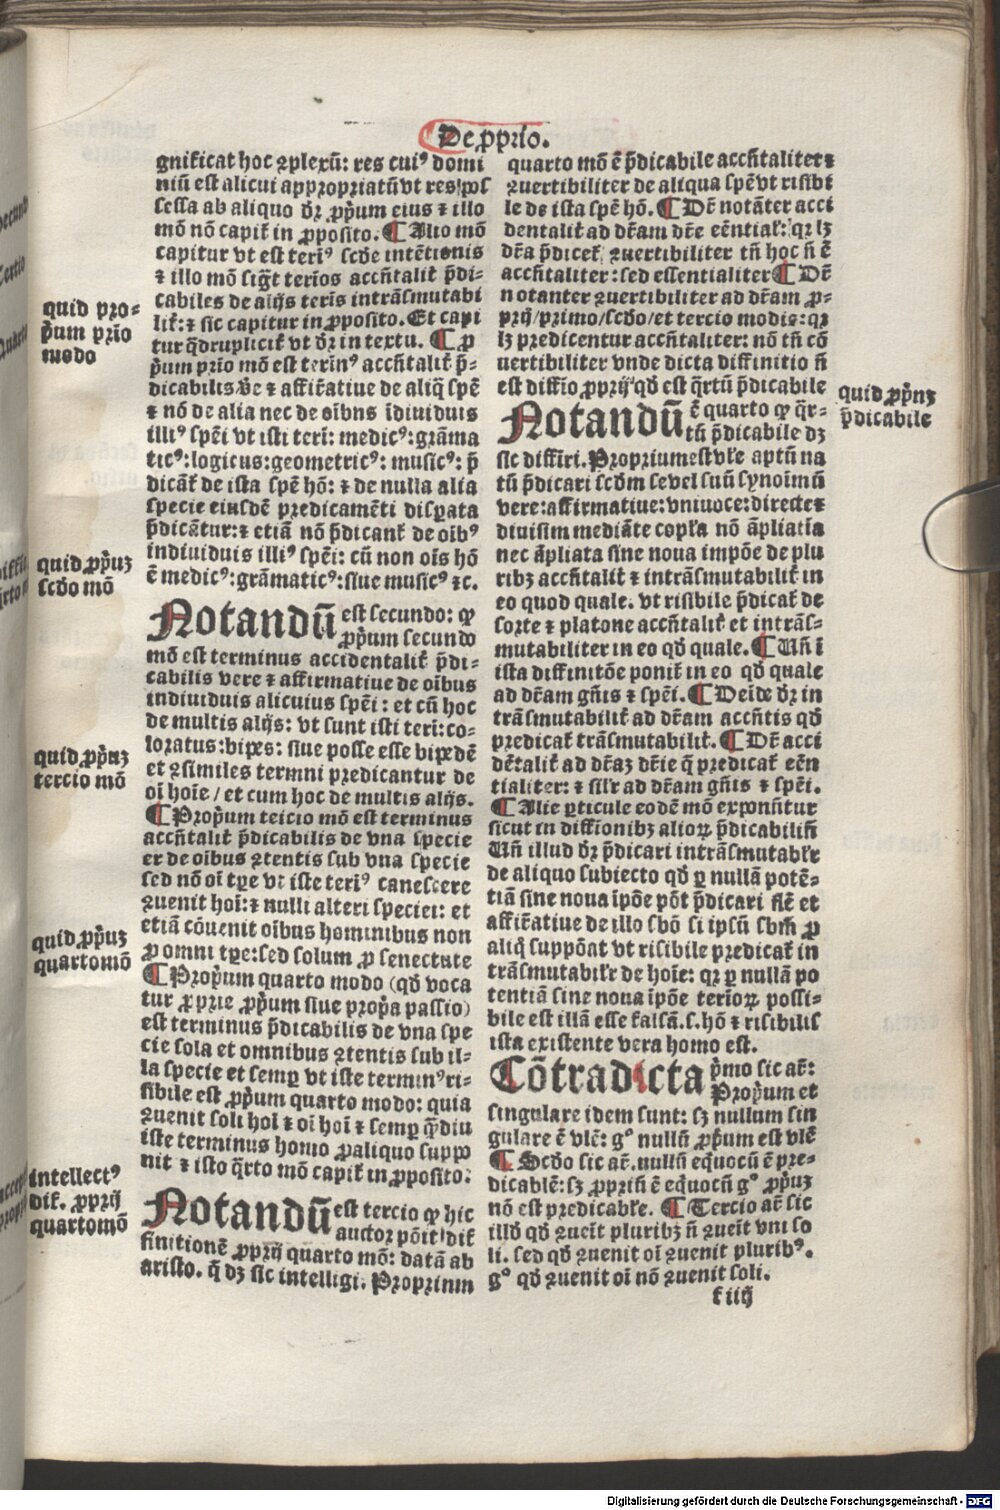 De ꝓprio.
gnificat hoc ꝯplexū: res cuiꝰ domi
niū est alicui appropriatū vt res pos
sessa ab aliquo dr̄ ꝓp̄um eius ⁊ illo
mō nō capit̄ in ꝓposito. ¶ Alio mō
capitur vt est ter̄iꝰ scd̄e intētionis
⁊ illo mō sigt̄ ter̄ios accn̄talit̄ p̄di-
cabiles de alijs ter̄is intrāsmutabi
lit̄: ⁊ sic capitur in ꝓposito. Et capi
tur q̄druplicit̄ vt dr̄ in textu. ¶ ꝓ
p̄um prīo mō est ter̄inꝰ accn̄talit̄ p̄-
dicabilis vē ⁊ affir̄atiue de aliq̄ spē
⁊ nō de alia nec de oībns īdiuiduis
illiꝰ spēi vt isti ter̄i: medicꝰ: grāma
ticꝰ: logicus: geometricꝰ: musicꝰ: p̄
dicāt̄ de ista spē hō: ⁊ de nulla alia
specie eiusdē predicamēti disꝑata
p̄dicātur: ⁊ etiā nō p̄dicant̄ de oībꝰ
indiuiduis illiꝰ spēi: cū non oīs hō
ē medicꝰ: grāmaticꝰ: siue musicꝰ ⁊c.
Notandū est secundo: ꝙ
ꝓp̄um secundo
mō est terminus accidentalit̄ p̄di-
cabilis vere ⁊ affirmatiue de oībus
indiuiduis alicuius spēi: et cū hoc
de multis alijs: vt sunt isti ter̄i: co-
loratus: bipes: siue posse esse bipedē
et ꝯsimiles termni predicantur de
oī hoīe / et cum hoc de multis alijs.
¶ Prop̄um teicio mō est terminus
accn̄talit̄ p̄dicabilis de vna specie
er de oībus ꝯtentis sub vna specie
sed nō oī tꝑe vt iste ter̄iꝰ canescere
ꝯuenit hoī: ⁊ nulli alteri speciei: et
etiā cōuenit oībus hominibus non
ꝓ omni tꝑe: sed solum ꝓ senectute
¶ Prop̄um quarto modo (qd̄ voca
tur ꝓprie ꝓp̄um siue prop̄a passio)
est terminus p̄dicabilis de vna spe
cie sola et omnibus ꝯtentis sub il-
la specie et semꝑ vt iste terminꝰ ri-
sibile est ꝓp̄um quarto modo: quia
ꝯuenit soli hoī ⁊ oī hoī ⁊ semꝑ q̄diu
iste terminus homo ꝓ aliquo suppo
nit ⁊ isto q̄rto mō capit̄ in ꝓposito:
Notandū est tercio ꝙ hic
auctor pōit dif
finitionē ꝓprij quarto mō: datā ab
aristo. q̄ dꝫ sic intelligi. Proprinm
quarto mō ē p̄dicabile accn̄taliter ⁊
ꝯuertibiliter de aliqua spē vt risibi
le de ista spē hō. ¶ Dr̄ notāter acci
dentalit̄ ad dr̄am dr̄e eēntiał: qꝛ lꝫ
dr̄a p̄dicet̄ ꝯuertibiliter tn̄ hoc n̄ ē
accn̄taliter: sed essentialiter ¶ Dr̄
notanter ꝯuertibiliter ad dr̄am ꝓ-
prij / primo / scd̄o / et tercio modis: qꝛ
lꝫ predicentur accn̄taliter: nō tn̄ cō
uertibiliter vnde dicta diffinitio n̄
est diffīo ꝓprij qd̄ est q̄rtū p̄dicabile
Notandū ē quarto ꝙ q̄r-
tū p̄dicabile dꝫ
sic diffir̄i. Proprium est vł'e aptū na
tū p̄dicari scd̄m se vel suū synoīm ū
vere: affirmatiue: vniuoce: directe ⁊
diuisim mediāte copl'a nō āpliatīa
nec āpliata sine noua impōe de plu
ribꝫ accn̄talit̄ ⁊ intrāsmutabilit̄ in
eo quod quale. vt risibile p̄dicat̄ de
sorte ⁊ platone accn̄talit̄ et intrās-
mutabiliter in eo qd̄ quale. ¶ Un̄ ī
ista diffinitōe ponit̄ in eo qd̄ quale
ad dr̄am gn̄is ⁊ spēi. ¶ Deīde dr̄ in
trāsmutabilit̄ ad dr̄am accn̄tis qd̄
predicat̄ trāsmutabilit̄. ¶ Dr̄ acci
dētalit̄ ad dr̄aꝫ dr̄ie q̄ predicat̄ eēn
tialiter: ⁊ sil'r ad dr̄am gn̄is ⁊ spēi.
¶ Alie ꝑticule eodē mō exponūtur
sicut in diffīonibꝫ alioꝝ p̄dicabiliū
Un̄ illud dr̄ p̄dicari intrāsmutabl'r
de aliquo subiecto qd̄ ꝑ nullā potē-
tiā sine noua īpōe pōt p̄dicari fle̅ et
affir̄atiue de illo sb̄o si ipsū sbm̄ ꝓ
aliq̄ suppōat vt risibile predicat̄ in
trāsmutabil'r de hoīe: qꝛ ꝑ nullā po
tentiā sine noua īpōe ter̄ioꝝ possi-
bile est illā esse falsā. s. hō ⁊ risibilis
ista existente vera homo est.
Cōtradicta p̄mo sic ar̄:
Prop̄um et
singulare idem sunt: sꝫ nullum sin
gulare ē vlē: gꝰ nullū ꝓp̄um est vlē
¶ Scd̄o sic ar̄. nullū eq̄uocū ē pre-
dicablē: sꝫ ꝓpriū ē equocū gꝰ ꝓp̄uꝫ
nō est predicabl'e. ¶ Tercio ar̄ sic
illd̄ qd̄ ꝯueīt pluribꝫ n̄ ꝯueīt vni so
li. sed qd̄ ꝯuenit oī ꝯuenit pluribꝰ.
gꝰ qd̄ ꝯuenit oī nō ꝯuenit soli.
f iiij
quid pro-
p̄um prīo
modo
quid ꝓp̄uꝫ
scd̄o mō
quid ꝓp̄uꝫ
tercio mō
quid ꝓp̄uꝫ
quarto mō
intellectꝰ
dif. ꝓprij
quarto mō
quid ꝓp̄uꝫ
p̄dicabile
Digitalisierung gefördert durch die Deutsche Forschungsgemeinschaft - DFG